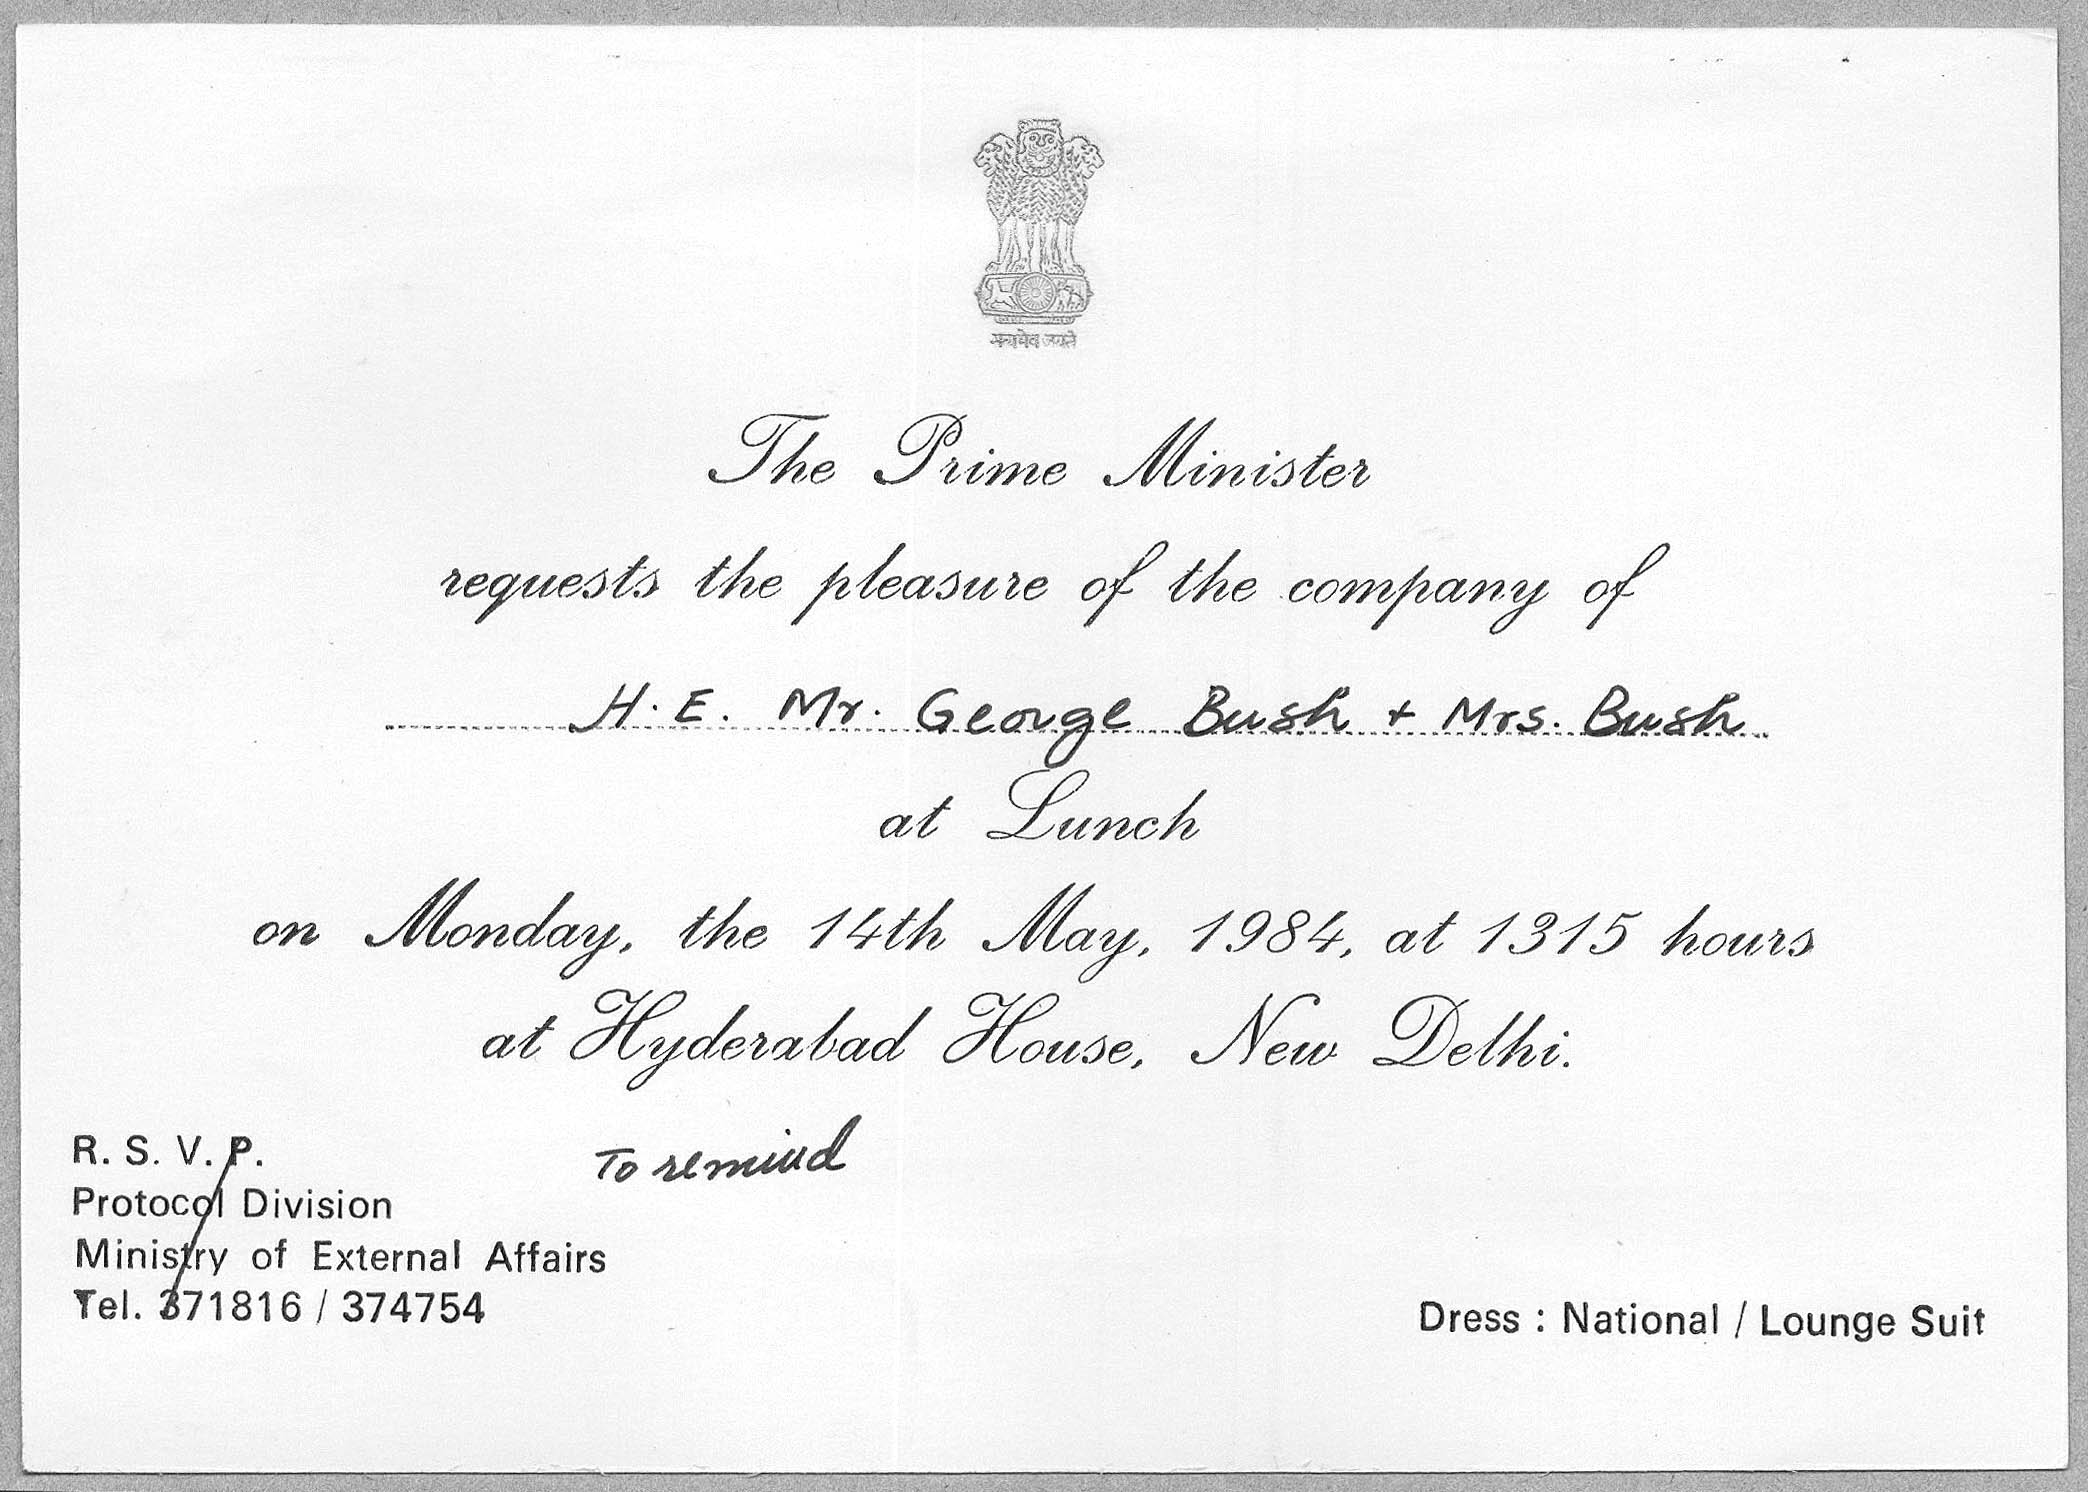 सत्यमेव जयते
The Prime Minister
requests the pleasure of the company of
H. E. Mr. George Bush + Mrs. Bush
at Lunch
on Monday, the 14th May, 1984, at 1315 hours
at Hyderabad House, New Delhi.
To remind
R. S. V. P.
Protocol Division
Ministry of External Affairs
Tel. 371816 / 374754
Dress : National / Lounge Suit